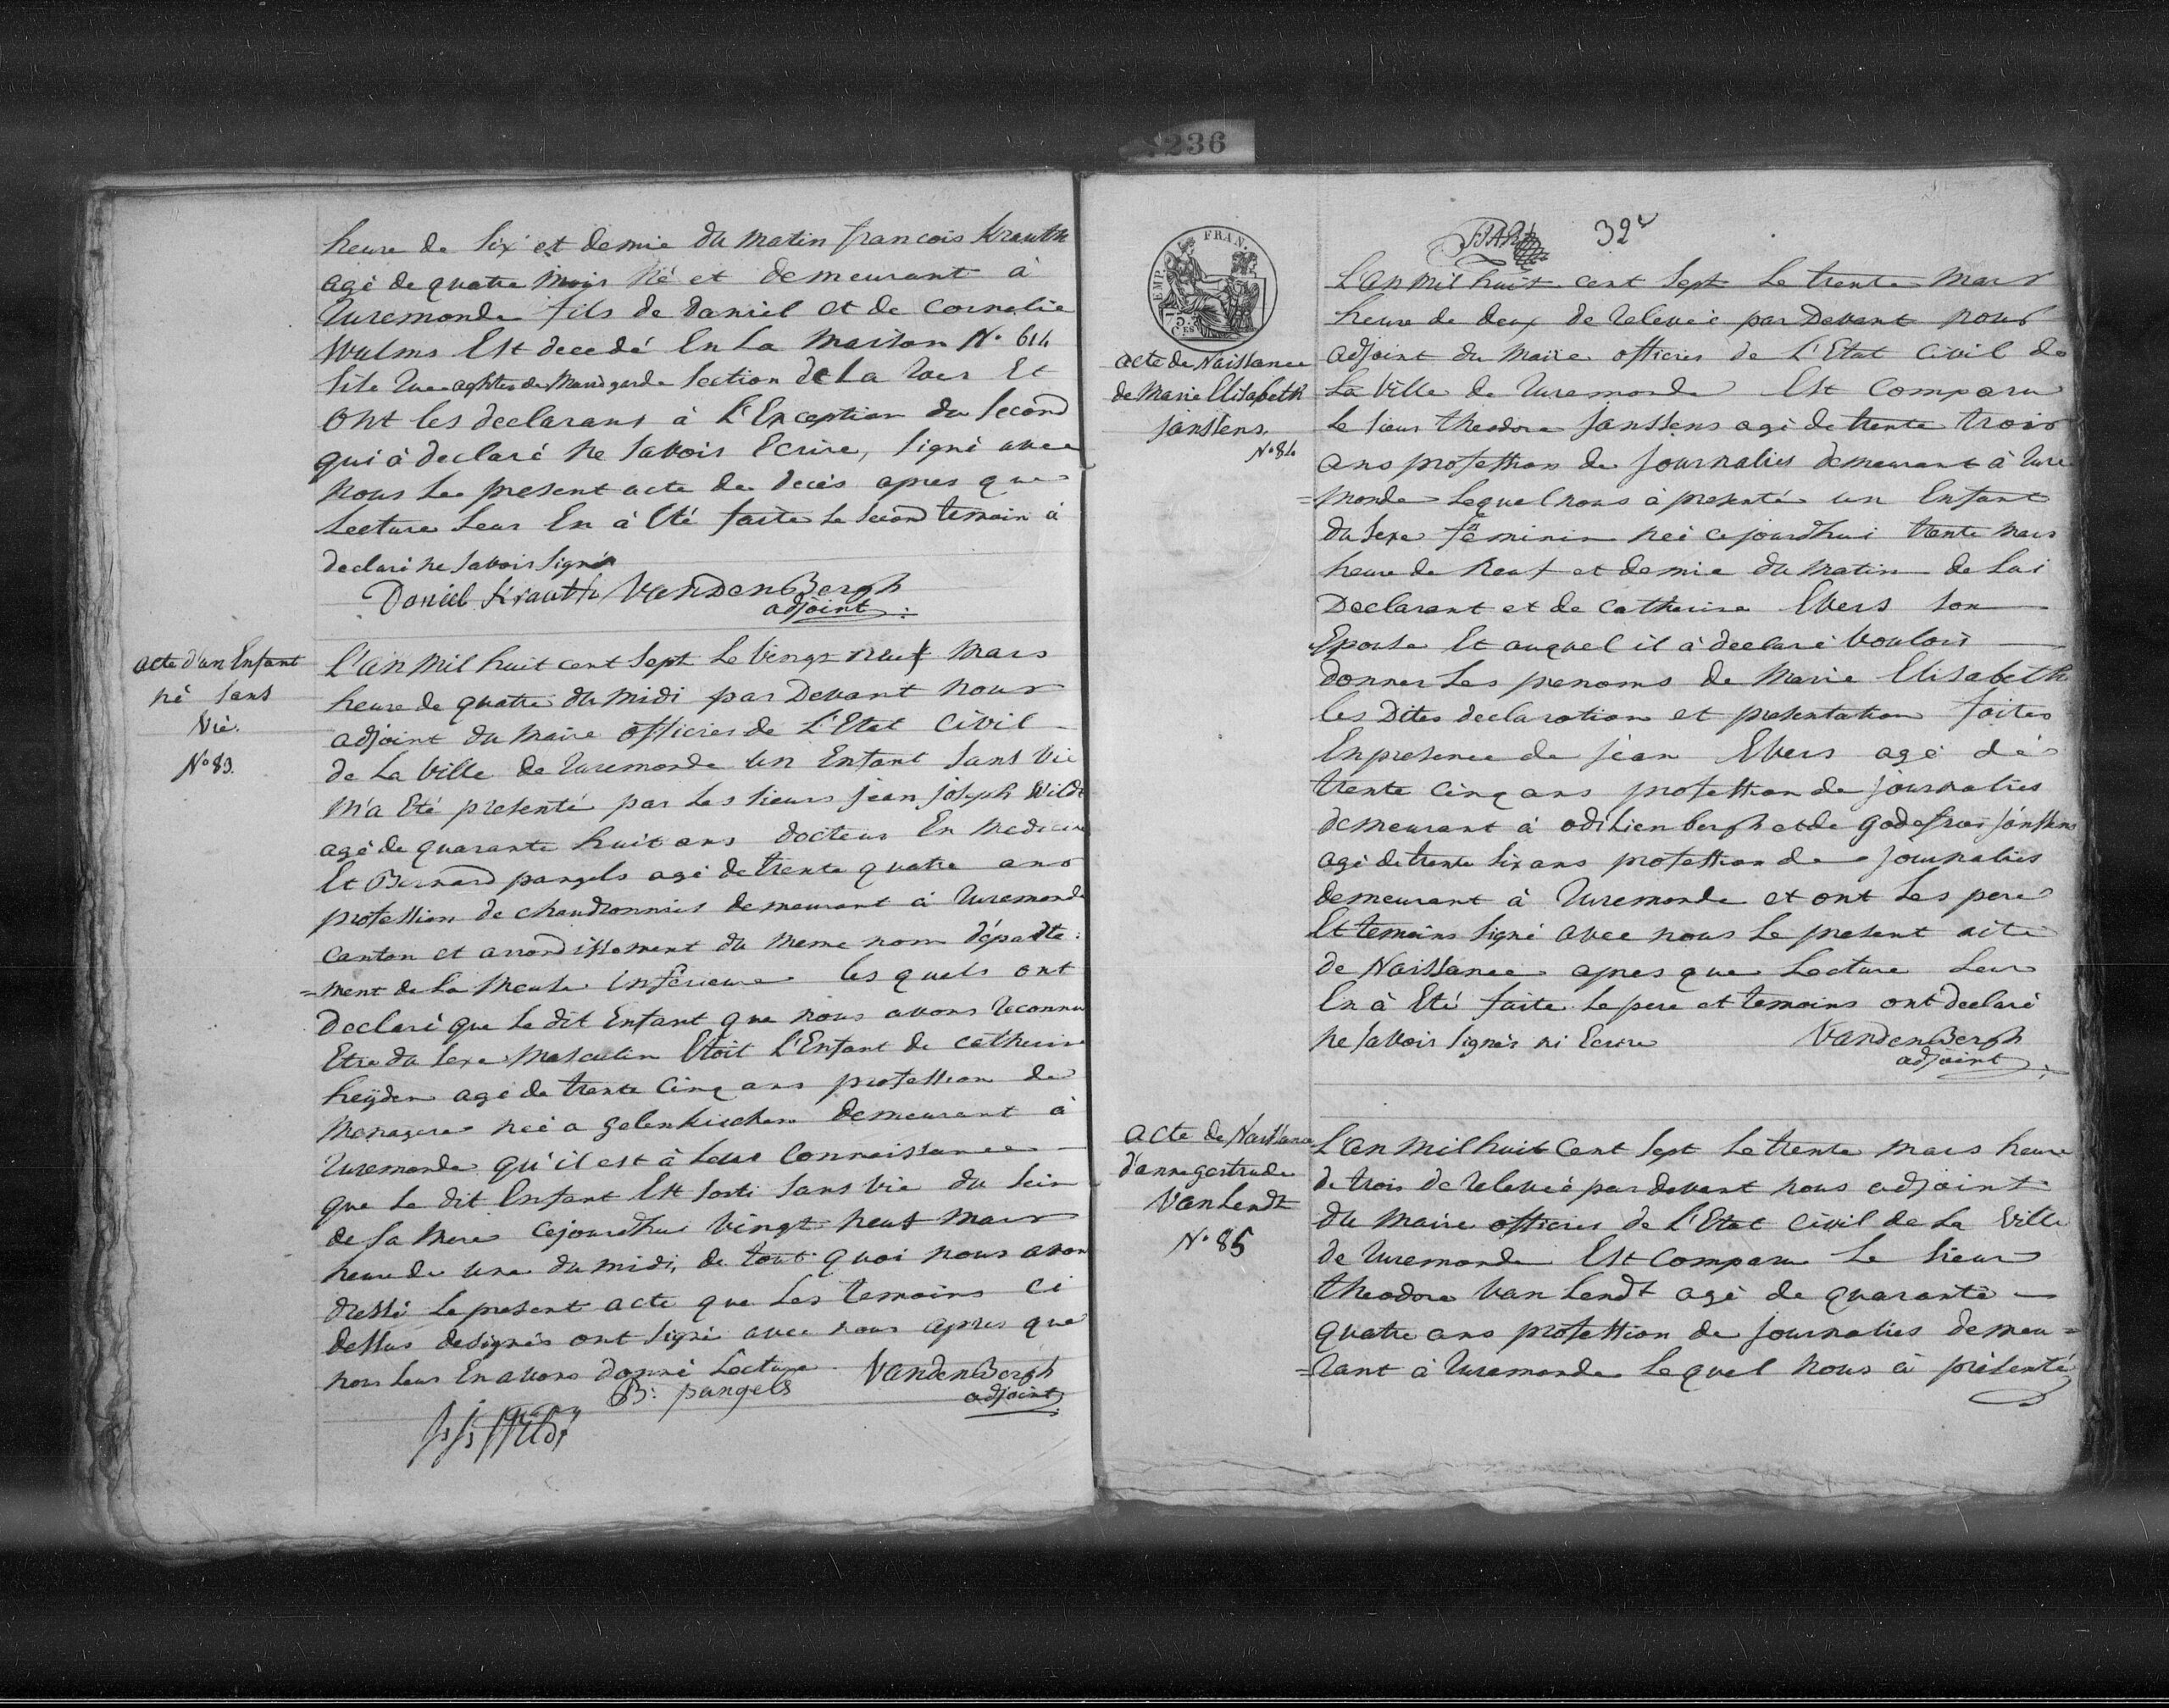 236
heure de Six et demie du Matin francois Krauth
agé de quatre Mois né et demeurant à
Ruremonde fils de Daniel et de Cornelie
Wulms Est decedé En La Maison N.o 614
Site Rue Section de La Roer Et
Ont les declarans à L'Exception du Second
qui à declaré Ne Savoir Ecrire, Signé avec
Nous Le present acte de Decès apres que
Lecture Leur En à Eté faite Le Second temoin à
declaré ne Savoir Signér
Daniel Krauth VandenBergh
adjoint
acte d'un Enfant
né Sans
Vie.
N.o 83.
L'an Mil huit cent Sept Le Vingt neuf Mars
heure de quatre du Midi par Devant Nous
adjoint du Maire Officier de L'Etat Civil
de La Ville de Ruremonde Un Enfant Sans Vie
M'a Eté presenté par Les Sieurs jean joseph Wildt
agé de quarante huit ans docteur En Medecine
Et Bernard pangels agé de trente quatre ans
profession de chaudronnier demeurant à Ruremonde
Canton et arrondissement du Meme nom départe:
=ment de La Meuse Inférieure Les quels ont
Declaré que Le dit Enfant que nous avons reconnu
Etre du Sexe Masculin Etoit L'Enfant de Catherine
heijden agé de trente Cinq ans profession de
Menagere neé a gelenkirchen demeurant à
Ruremonde qu'il est à Leur Connaissance
que Le dit Enfant Est Sorti Sans Vie du Sein
de Sa Mere Cejourdhui Vingt neuf Mars
heure de Une du midi, de tout quoi nous avons
dressé Le present acte que Les temoins Ci
dessus designés ont Signé avec nous apres que
nous Leur En avons donné Lecture. VandenBergh
B: pangels adjoint
32e
EMP. FRAN.
75 CES
acte de Naissance
de Marie Elisabeth
janssens.
N.o 84
L'an Mil huit cent Sept Le trente Mars
heure de deux de Relevée par Devant Nous
adjoint du Maire officier de L'Etat Civil de
La Ville de Ruremonde Est Comparu
Le Sieur theodore janssens agé de trente trois
ans profession de journalier demeurant à Rure
=monde Lequel nous à presenté un Enfant
du Sexe féminin neé cejourdhui trente Mars
heure de Neuf et demie du Matin de Lui
Declarant et de Catherine Evers Son
Epouse Et auquel il à declaré Vouloir
donner Les prenoms de Marie Elisabeth
Les Dites declaration et presentation faites
En presence de jean Evers agé de
trente Cinq ans profession de journalier
demeurant à odilienbergh et de godefroi janssens
agé de trente Six ans profession de journalier
demeurant à Ruremonde et ont Les pere
Et temoins Signé avec nous Le present acte
de Naissance apres que Lecture Leur
En à Eté faite Le pere et temoins ont declaré
Ne Savoir Signér ni Ecrire VandenBergh
adjoint
acte de Naissance
d'anne gertrude
Van Lendt
N.o 85
L'an Mil huit Cent Sept Le trente Mars heure
de trois de Relevée par devant nous adjoint
du Maire officier de L'Etat Civil de La Ville
de Ruremonde Est Comparu Le Sieur
theodore Van Lendt agé de quarante
quatre ans profession de journalier demeu=
=rant à Ruremonde Lequel Nous à présenté